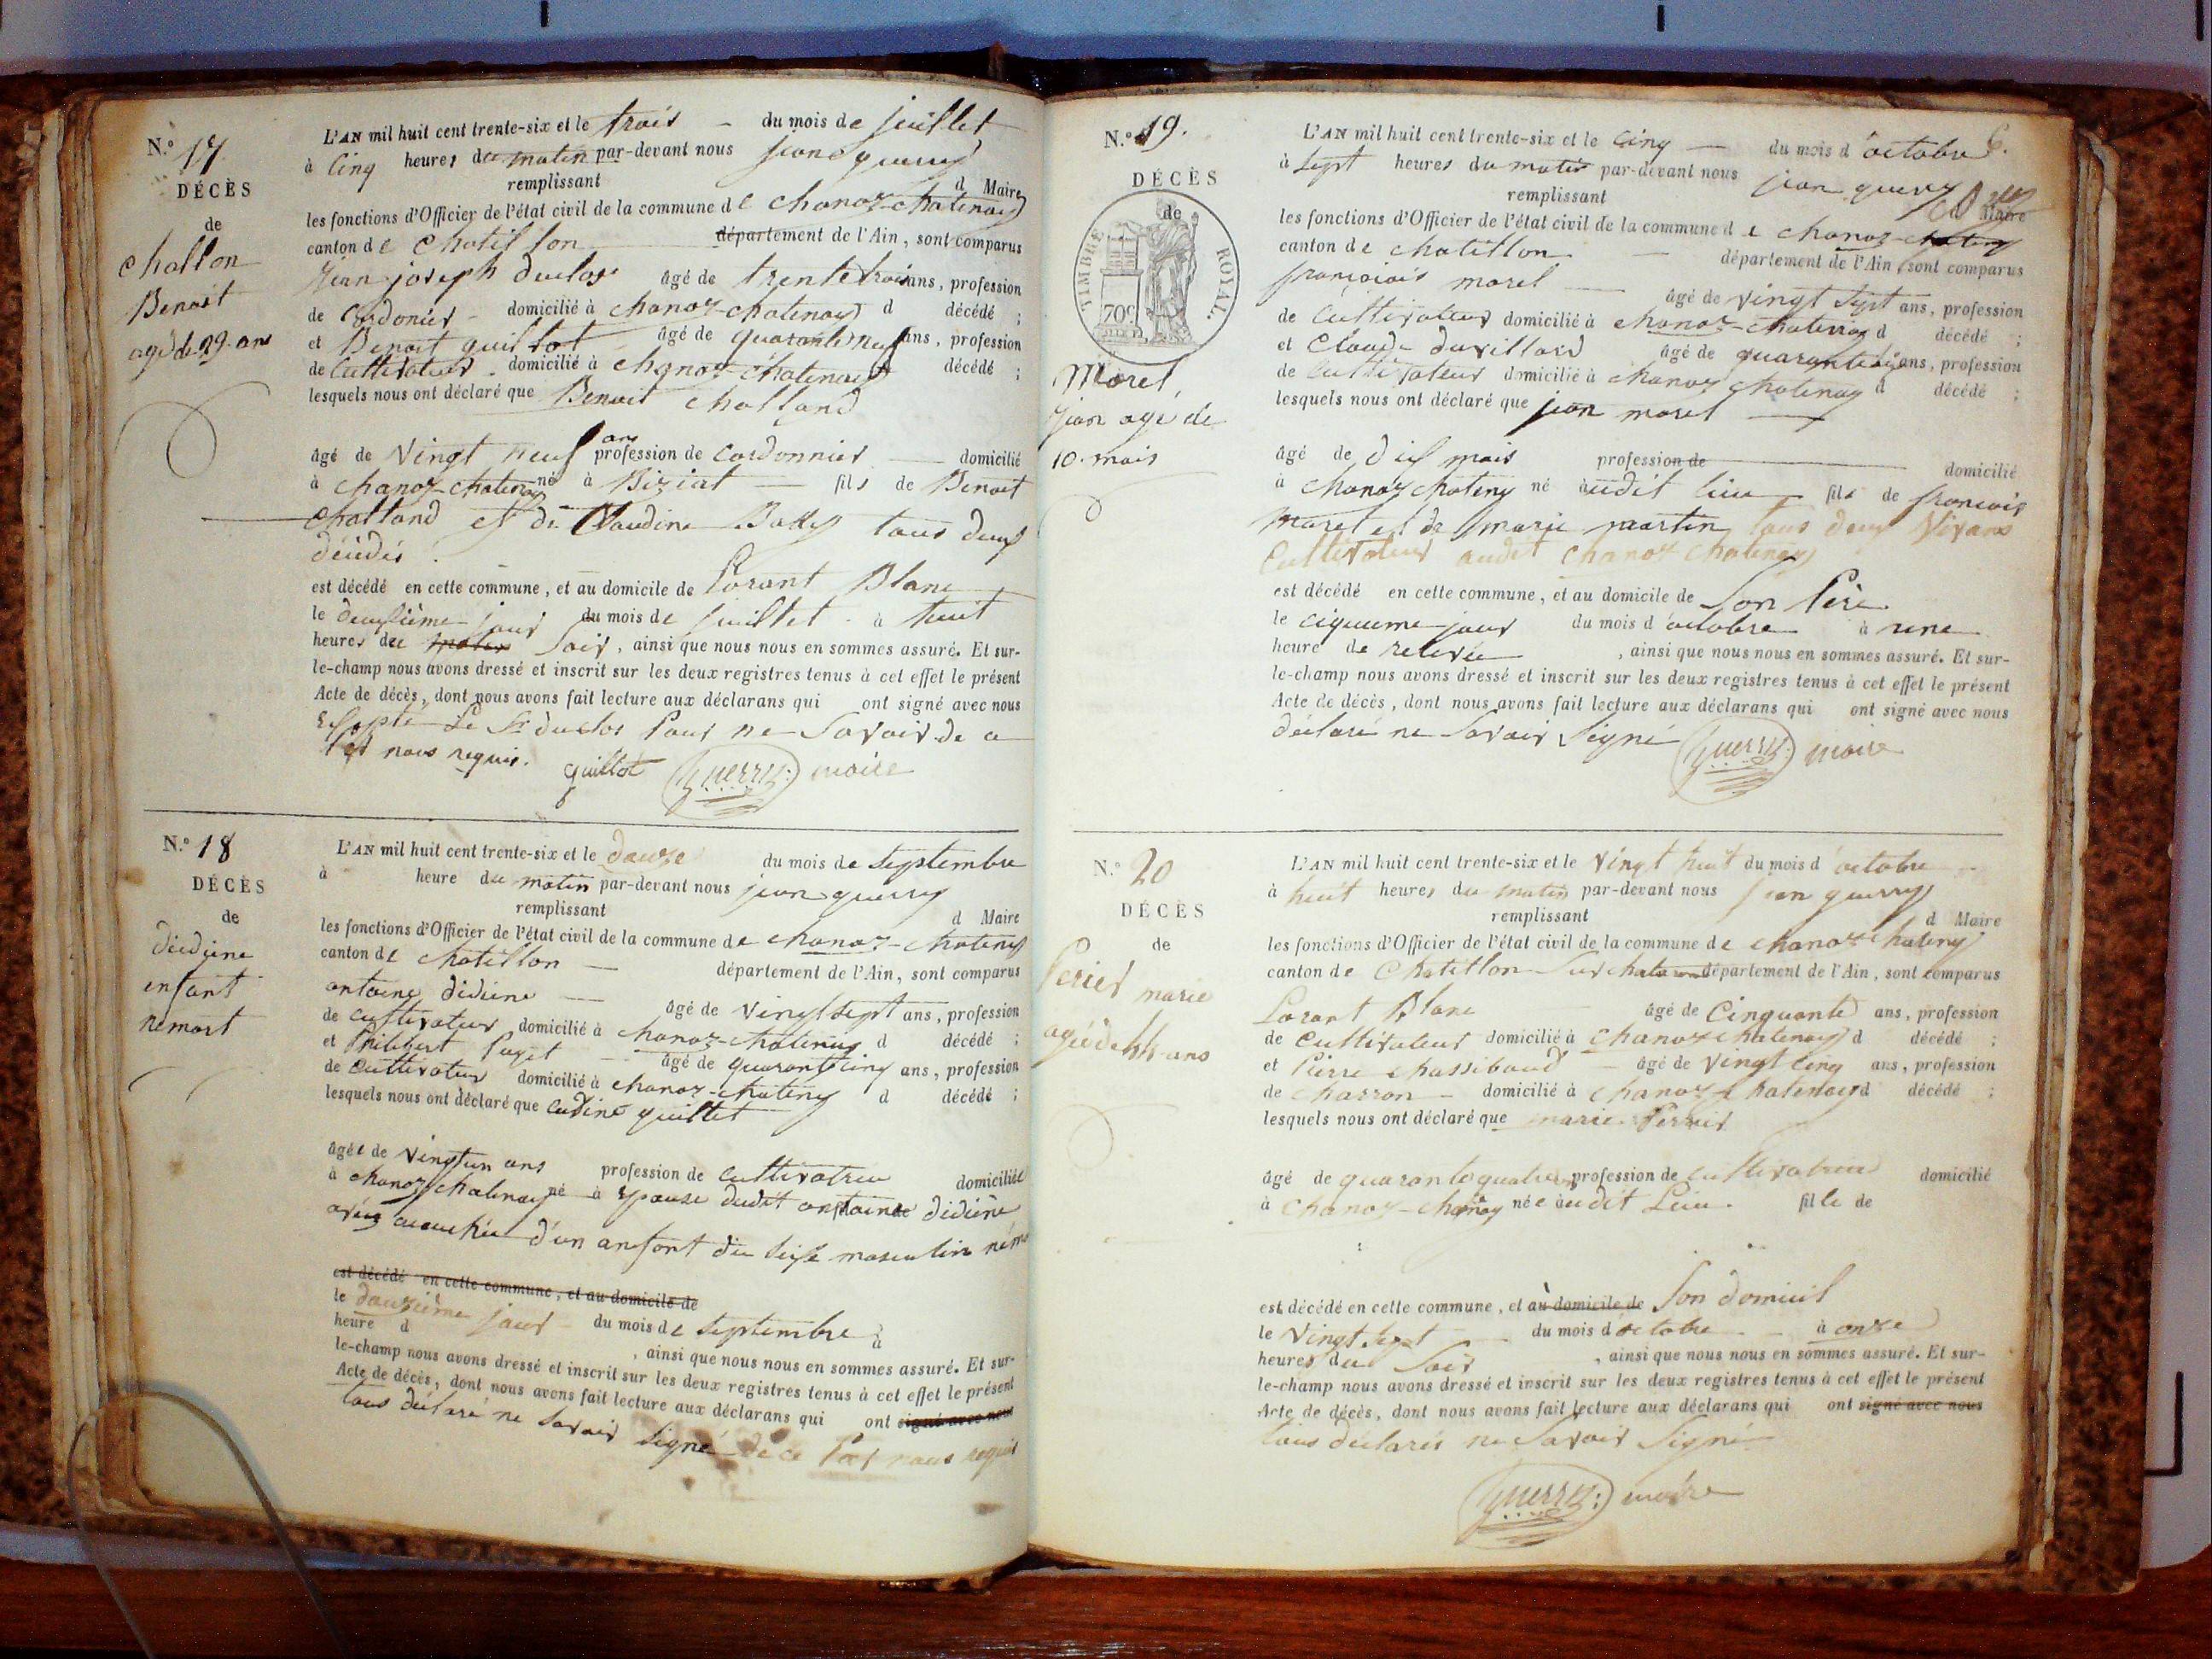 N.º 17
DÉCÈS
de
Challon
Benoit
agé de 29. ans
L'AN mil huit cent trente-six et le trois – du mois de juillet
à Cinq heures du matin par-devant nous jean guerry
remplissant d Maire
les fonctions d'Officier de l'état civil de la commune de Chanoz-Chatenay
canton de Chatillon département de l'Ain, sont comparus
jean joseph duclos âgé de trente trois ans, profession
de Cordonier – domicilié à Chanoz-Chatenay d décédé ;
et Benoit guillot âgé de quarante neuf ans, profession
de Cultivateur . domicilié à Chanoz-Chatenay d décédé ;
lesquels nous ont déclaré que Benoit Challand
âgé de Vingt neuf ans profession de Cordonnier domicilié
à Chanoz-Chatenay né à Biziat fils de Benoit
Challand et de Claudine Bally tous deux
décédés
est décédé en cette commune, et au domicile de Lorant Blanc
le deuxième jour du mois de juillet à huit
heures du matin Soir, ainsi que nous nous en sommes assuré. Et sur-
le-champ nous avons dressé et inscrit sur les deux registres tenus à cet effet le présent
Acte de décès, dont nous avons fait lecture aux déclarans qui ont signé avec nous
Le Sr duclos Pour ne Savoir de a
nous requis. guillot Guerry maire
N.º 18
DÉCÈS
de
didiene
enfant
ne mort
L'AN mil huit cent trente-six et le douze du mois de Septembre
à heure du matin par-devant nous jean guerry
remplissant d Maire
les fonctions d'Officier de l'état civil de la commune de Chanoz-Chateny
canton de Chatillon département de l'Ain, sont comparus
antoine didiene âgé de Vingt Sept ans, profession
de Cultivateur domicilié à Chanoz-Chatenay d décédé ;
et Philibert Puget âgé de quarante Cinq ans, profession
de Cultivateur domicilié à Chanoz-Chateny d décédé ;
lesquels nous ont déclaré que guillet
âgée de Vingt un ans profession de Cultivatrice domiciliée
à Chanoz Chatenay né à Epouse dudit antoine didiène
acouchée d'un anfant du Seixe masculin
est décédé en cette commune, et au domicile de
le douzième jour du mois de Septembre à
heure d , ainsi que nous nous en sommes assuré. Et sur-
le-champ nous avons dressé et inscrit sur les deux registres tenus à cet effet le présent
Acte de décès, dont nous avons fait lecture aux déclarans qui ont signé avec nous
tous déclaré ne Savoir Signé de ce nous requis
N.º 19.
DÉCÈS
de
TIMBRE ROYAL.
70c
Morel,
jean agé de
10. mois
6.
L'AN mil huit cent trente-six et le Cinq du mois d'octobre
à Sept heures du matin par-devant nous jean guerry
remplissant d Maire
les fonctions d'Officier de l'état civil de la commune de Chanoz-Chateny
canton de Chatillon département de l'Ain, sont comparus
françois morel âgé de Vingt Sept ans, profession
de Cultivateur domicilié à Chanoz-Chatenay d décédé ;
et Claude duvillard âgé de ans, profession
de Cultivateur domicilié à Chanoz Chatenay d décédé ;
lesquels nous ont déclaré que jean morel
âgé de dix mois profession de domicilié
à Chanoz Chateny né audit lieu fils de francois
Morel et de marie martin tous deux Vivans
Cultivateur audit Chanoz Chatenay
est décédé en cette commune, et au domicile de Son Père
le ciquieme jour du mois d'octobre à une
heure de relevée , ainsi que nous nous en sommes assuré. Et sur-
le-champ nous avons dressé et inscrit sur les deux registres tenus à cet effet le présent
Acte de décès, dont nous avons fait lecture aux déclarans qui ont signé avec nous
déclaré ne Savoir Signé Guerry maire
N.º 20
DÉCÈS
de
Perier marie
agée de 44 ans
L'AN mil huit cent trente-six et le Vingt huit du mois d'octobre
à huit heures du matin par-devant nous jean guerry
remplissant d Maire
les fonctions d'Officier de l'état civil de la commune de Chanoz Chateny
canton de Chatillon Sur département de l'Ain, sont comparus
Lorant Blanc âgé de Cinquante ans, profession
de Cultivateur domicilié à Chanoz Chatenay d décédé ;
et Pierre Chassibaud – âgé de Vingt Cinq ans, profession
de Charron – domicilié à Chanoz Chatenay d décédé ;
lesquels nous ont déclaré que marie Perrier
âgé de quarante quatre profession de Cultivatrice domicilié
à Chanoz-Chatenay née audit Lieu. fille de
est décédé en cette commune, et au domicile de Son domicil
le Vingt Sept du mois d'octobre à onze
heures du Soir , ainsi que nous nous en sommes assuré. Et sur-
le-champ nous avons dressé et inscrit sur les deux registres tenus à cet effet le présent
Acte de décès, dont nous avons fait lecture aux déclarans qui ont signé avec nous
tous déclarés ne Savoir Signé
Guerry maire